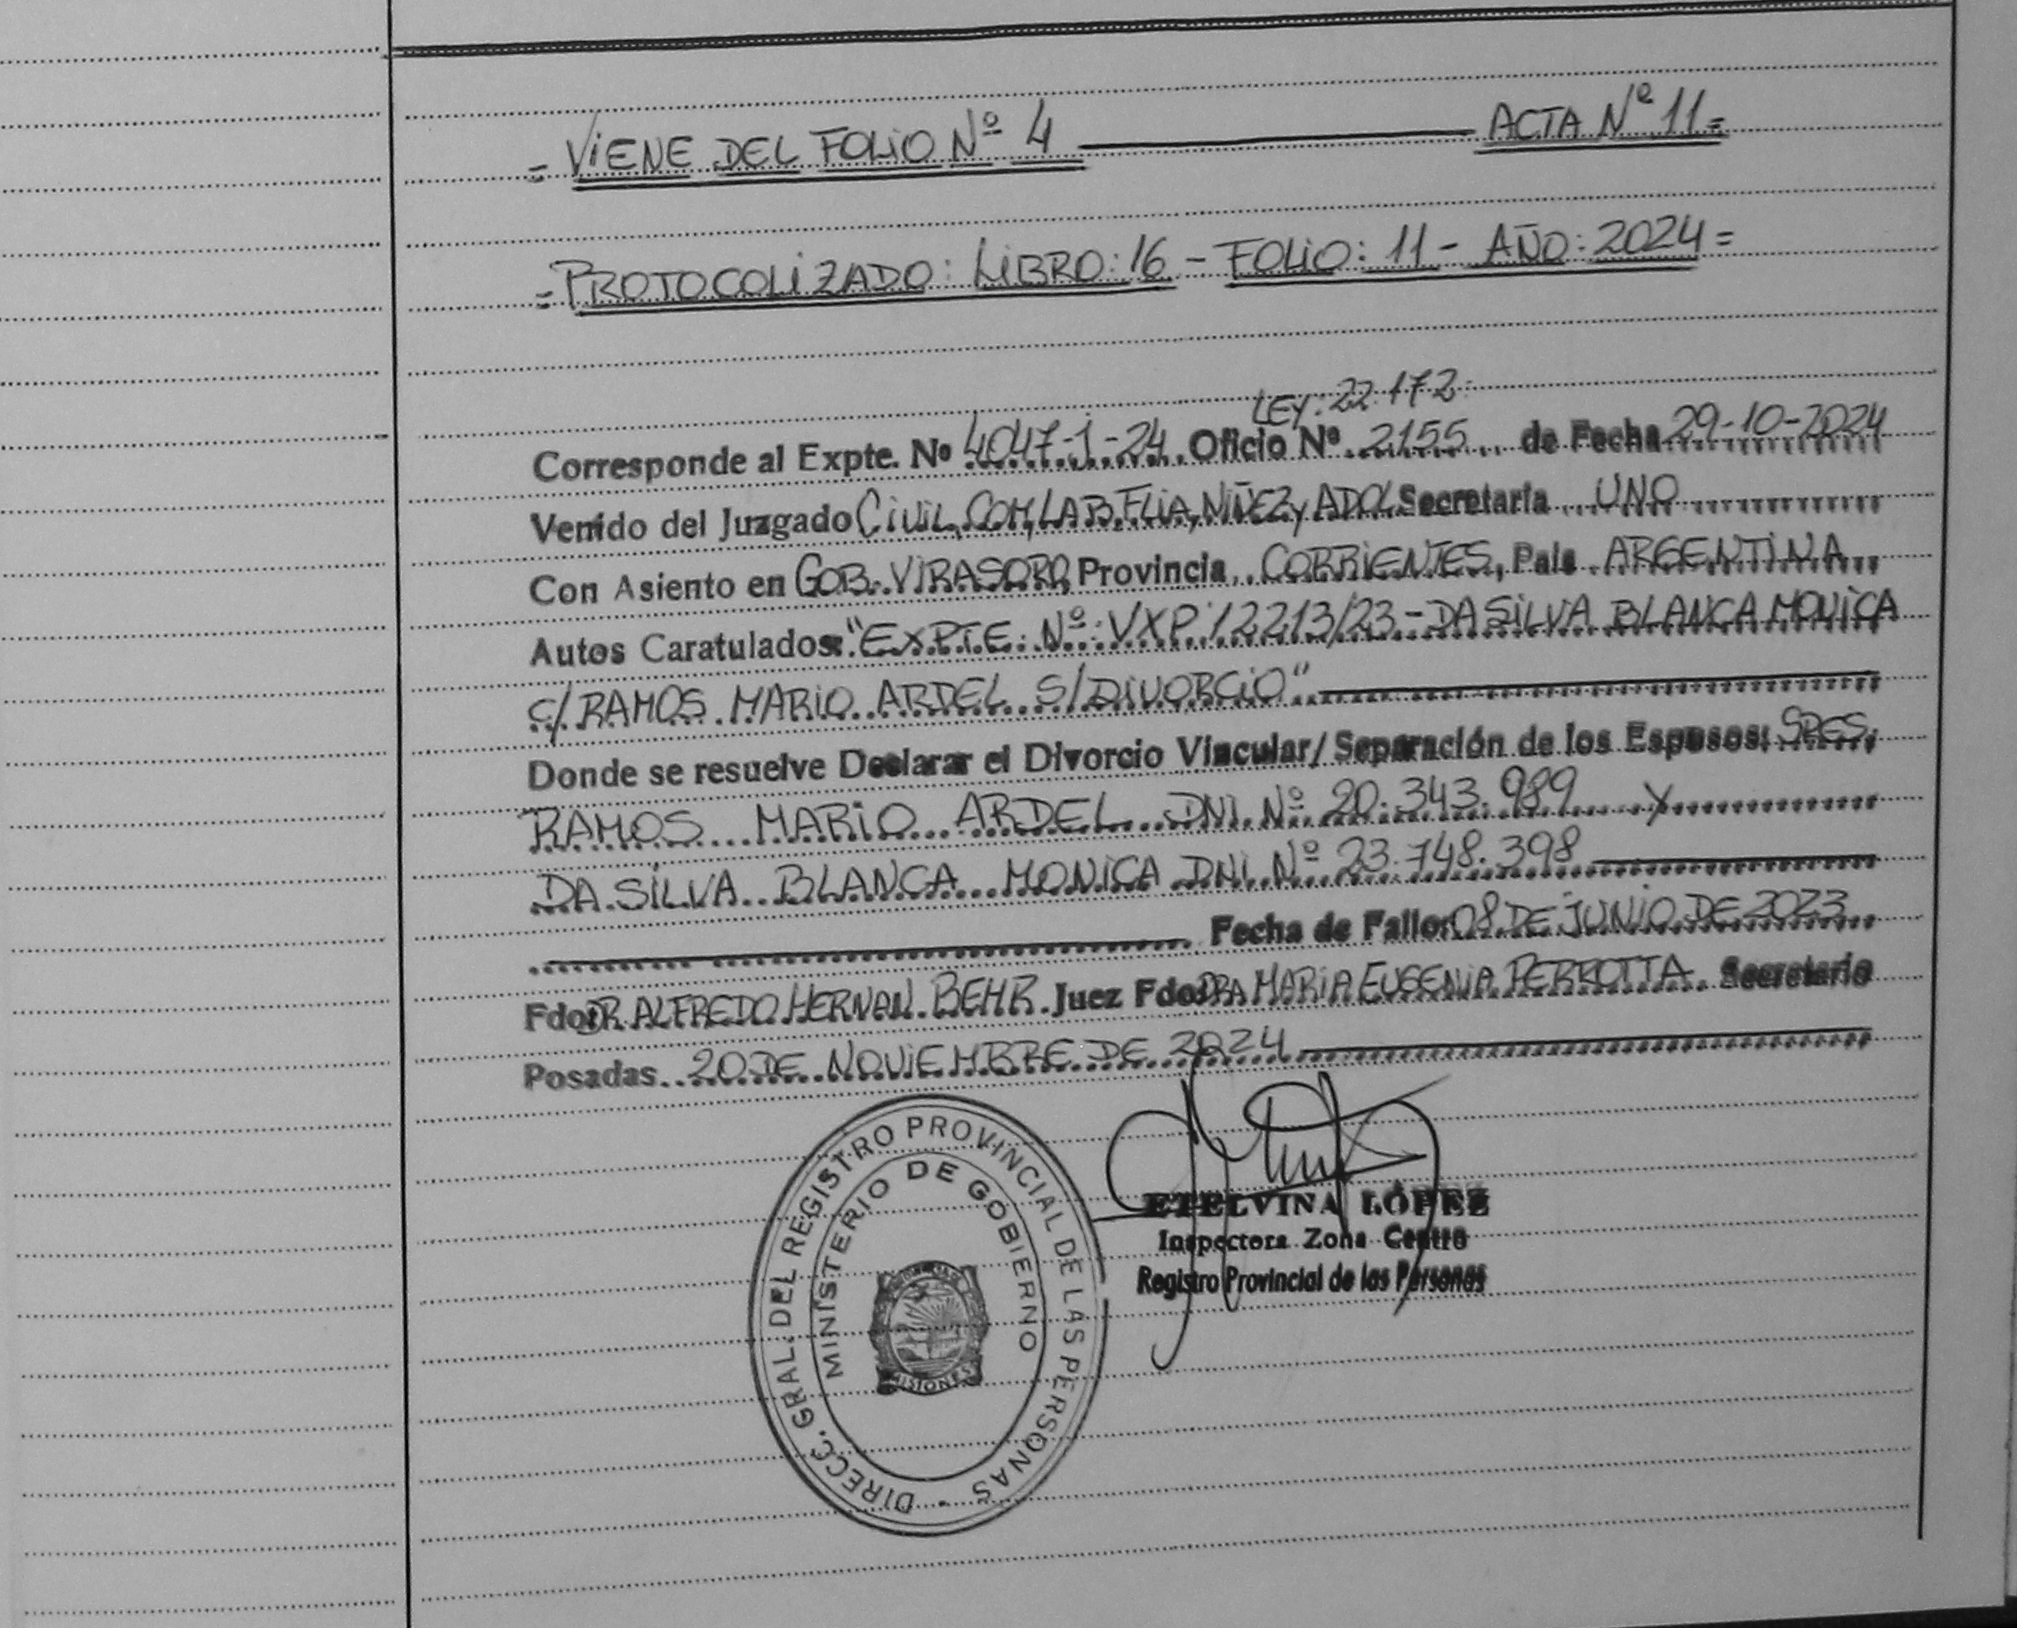 = VIENE DEL FOLIO Nº 4 ——— ACTA Nº 11 =
= PROTOCOLIZADO: LIBRO: 16 - FOLIO: 11 - AÑO: 2024 =
LEY: 22.172
Corresponde al Expte. Nº 4047-1-24 Oficio Nº 2155 de Fecha 29-10-2024
Venido del Juzgado CIVIL, COM, LAB, FLIA, NIÑEZ y ADOL Secretaría UNO
Con Asiento en GOB. VIRASORO, Provincia CORRIENTES, País ARGENTINA
Autos Caratulados: "EXPTE. Nº: VXP 12213/23 - DA SILVA BLANCA MONICA
C/ RAMOS MARIO ARDEL S/ DIVORCIO"
Donde se resuelve Declarar el Divorcio Vincular/Separación de los Esposos: SRES.
RAMOS MARIO ARDEL DNI. Nº 20.343.989 Y
DA SILVA BLANCA MONICA DNI. Nº 23.748.398
Fecha de Fallo: 08 DE JUNIO DE 2023
Fdo: DR ALFREDO HERNAN BEHR Juez Fdo: DRA MARIA EUSENIA PERROTTA Secretario
Posadas 20 DE NOVIEMBRE DE 2024
DIRECC. GRAL. DEL REGISTRO PROVINCIAL DE LAS PERSONAS -
MINISTERIO DE GOBIERNO
MISIONES
ETELVINA LÓPEZ
Inspectora Zona Centro
Registro Provincial de las Personas